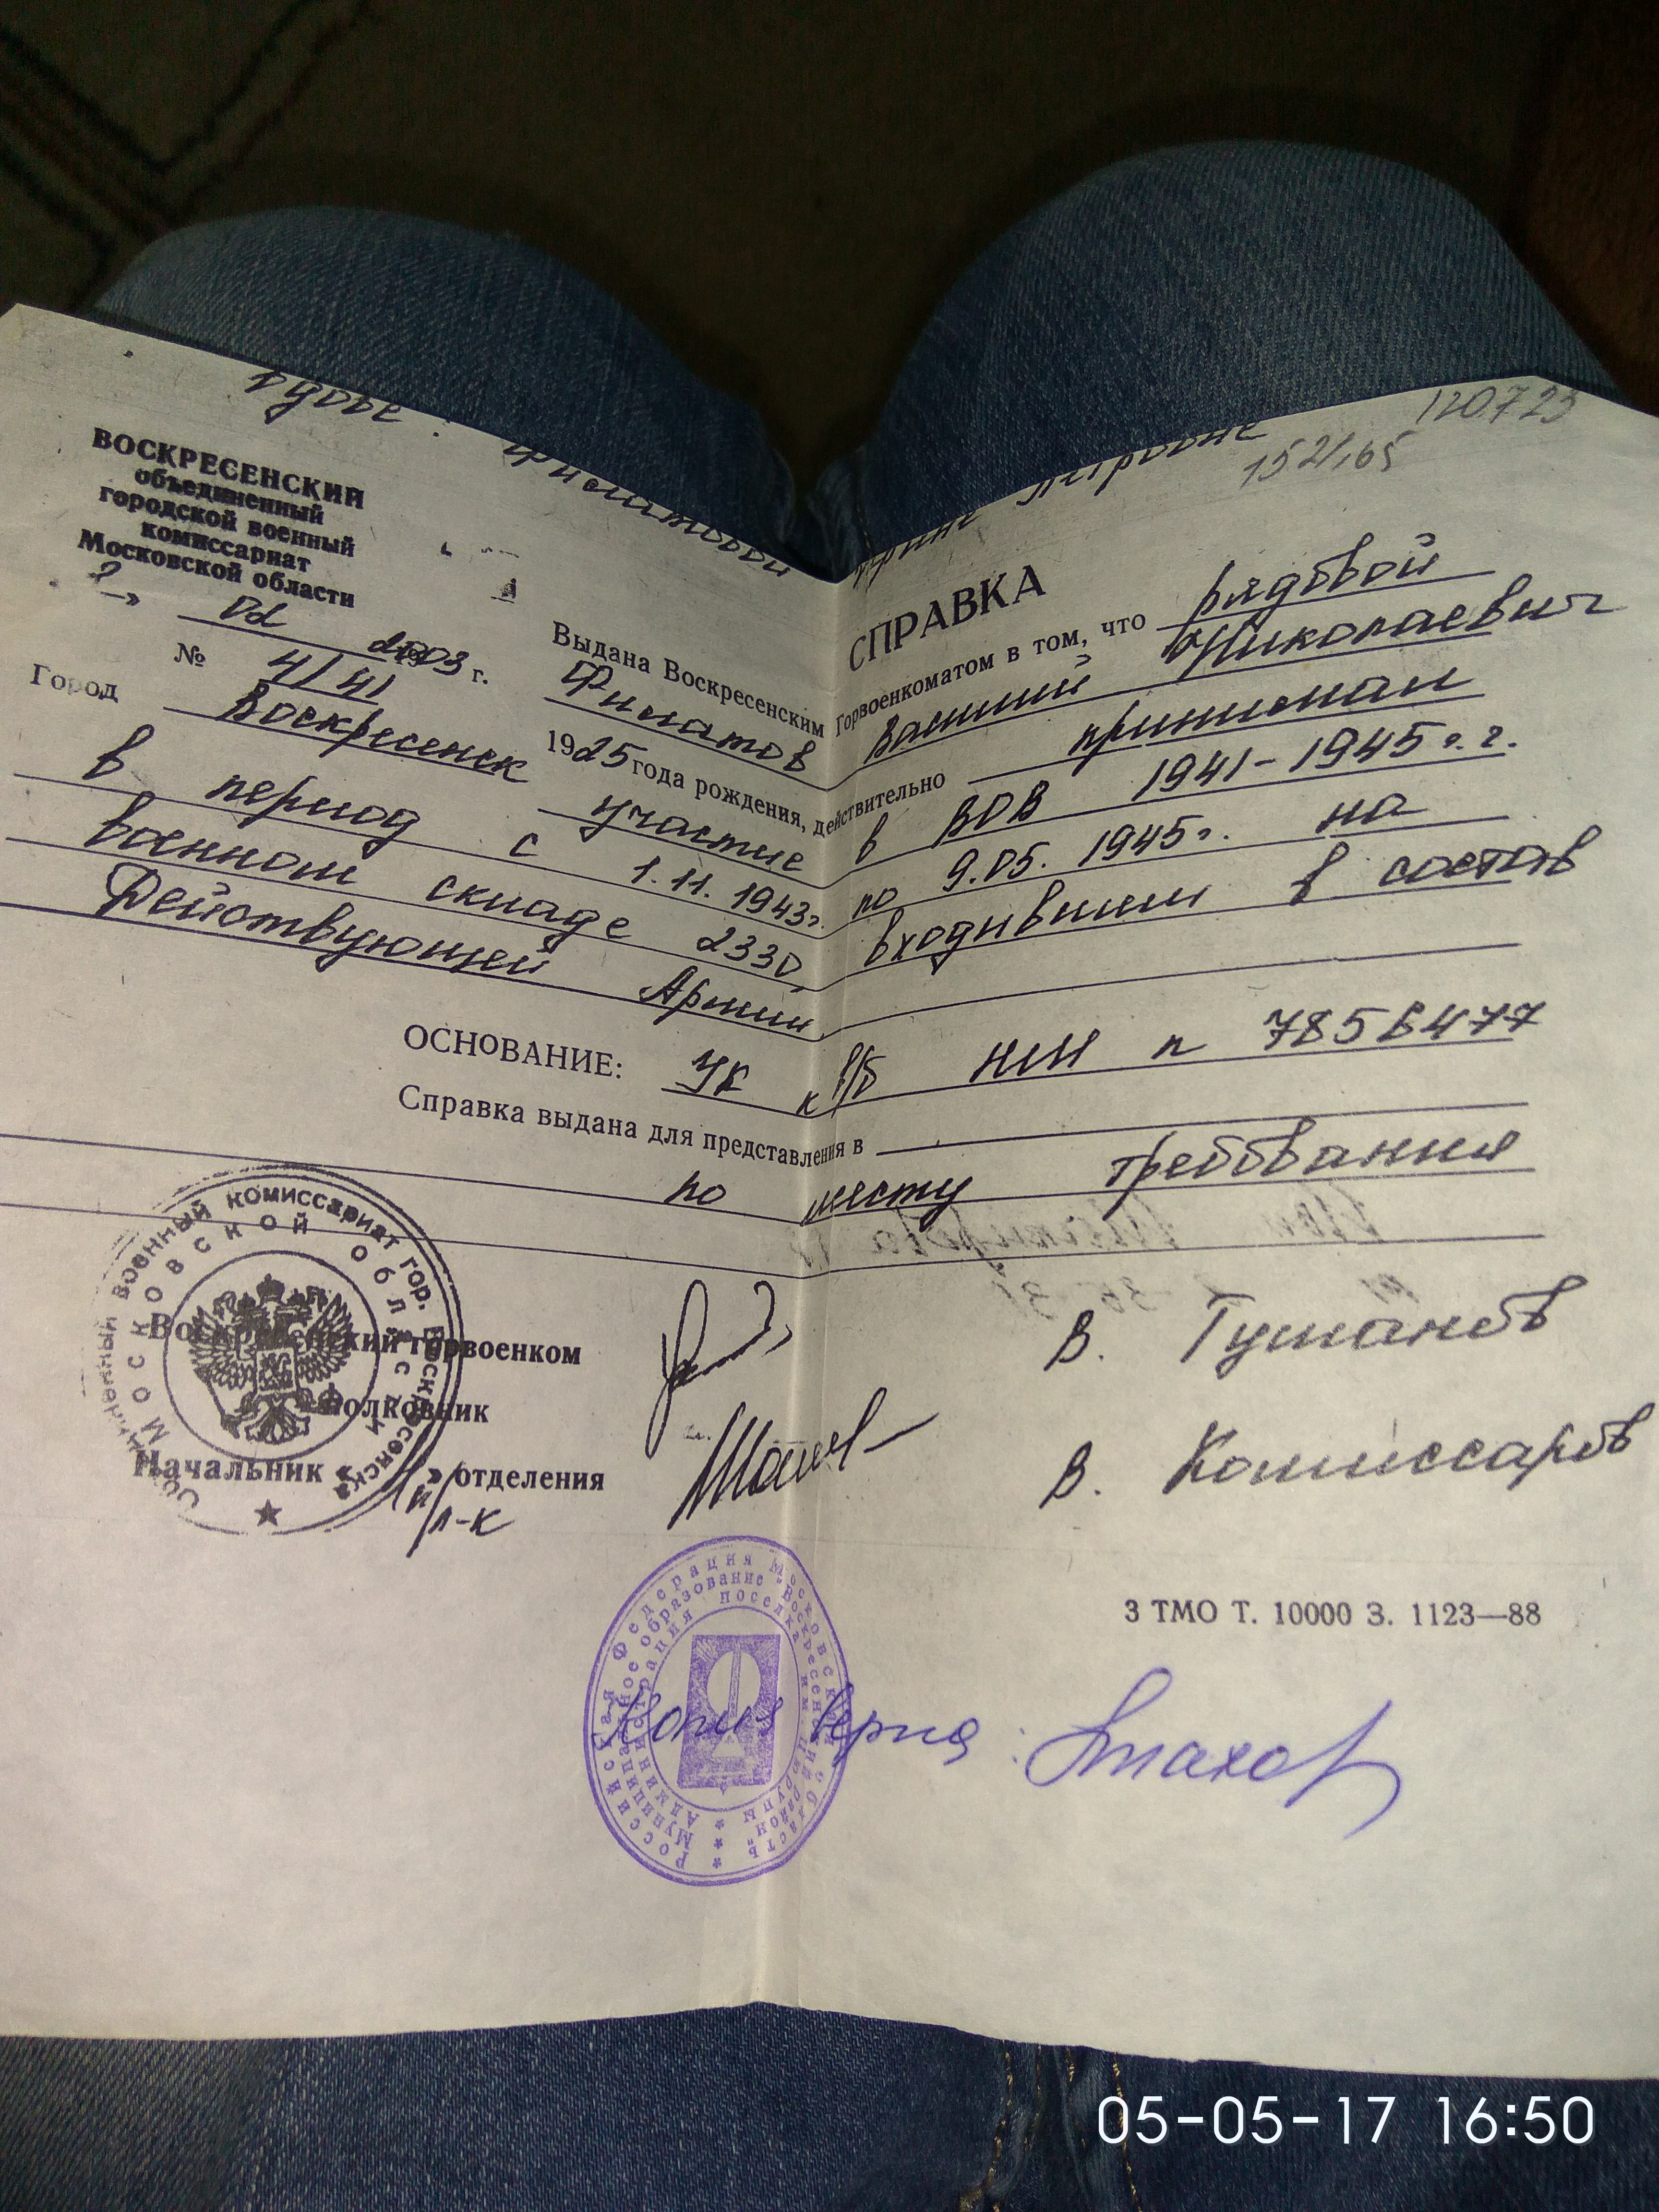 Вдове: Филатовой Ирине Петровне
120723
152/165
ВОСКРЕСЕНСКИЙ
объединенный
городской военный
комиссариат
Московской области
02 2003 г.
№ 41/41
Город Воскресенск
СПРАВКА
Выдана Воскресенским Горвоенкоматом в том, что рядовой
Филатов Василий Николаевич
1925 года рождения, действительно принимал
участие в ВОВ 1941-1945 г.г.
в период с 1.11.1943г. по 9.05.1945г. на
военном складе 2330, входившем в состав
Действующей Армии
ОСНОВАНИЕ: УК к в/б НИ № 7856477
Справка выдана для представления в
по месту требования
Воскресенский горвоенком
полковник
В. Туманов
Начальник « » отделения
п/п-к
В. Комиссаров
Объединенный военный комиссариат гор. Воскресенска
Московской области
3 ТМО Т. 10000 З. 1123—88
Российская Федерация Московская область
Муниципальное образование "Воскресенский район"
Администрация поселка им. Цюрупы
Копия верна:
05-05-17 16:50